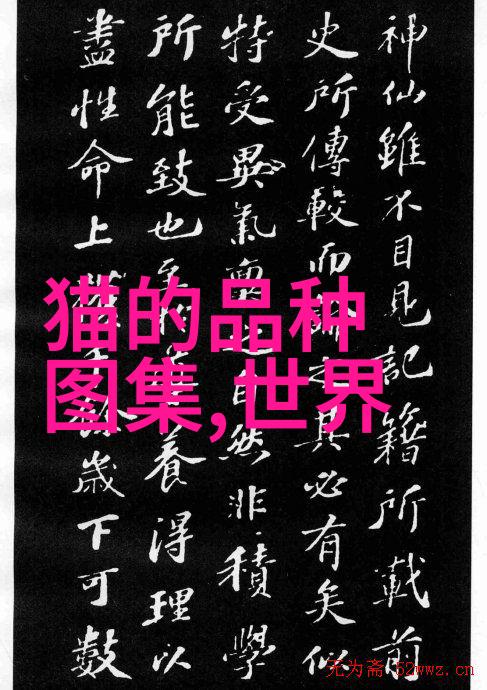 神仙雖不目見記籍所載前
史所傳較而之其必有矣似
特受異氣稟之自然非積學
所能致也至養得理以
盡性命上千餘歲下可數
猫的品种
图集,世界
无为斋·52wwz.cn